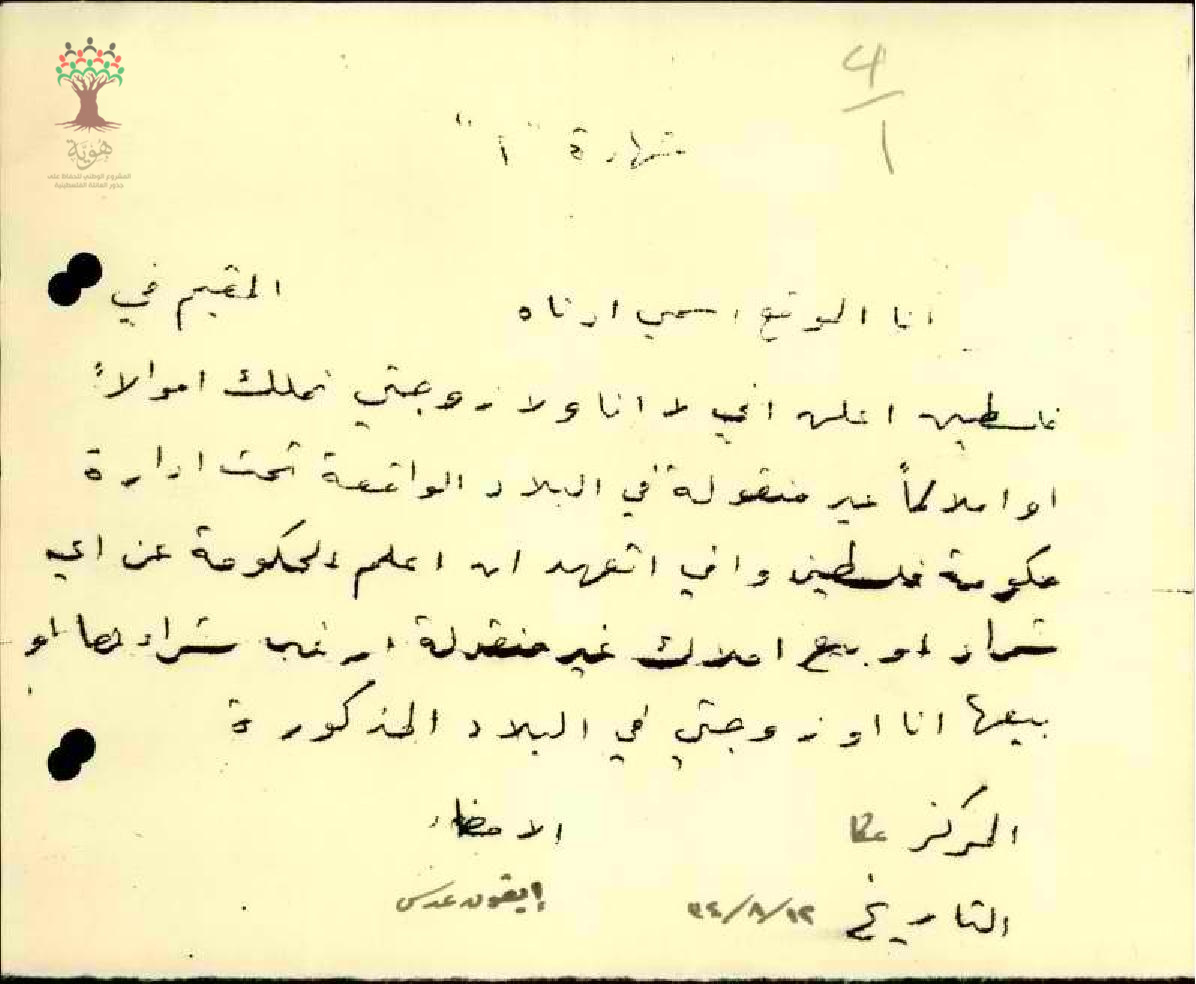 هوية
المشروع الوطني للحفاظ على
جذور العائلة الفلسطينية
4/1
شهادة "أ"
انا الموقع اسمي ادناه المقيم في
فلسطين اعلن اني لا انا ولا زوجتي نملك اموالاً
او املاكاً غير منقولة في البلاد الواقعة تحت ادارة
حكومة فلسطين واني اتعهد ان اعلم الحكومة عن اي
شراء او بيع املاك غير منقولة ارغب شراءها او
بيعها انا او زوجتي في البلاد المذكورة
المركز عكا الامضاء
التاريخ ٢٤/٨/١٢